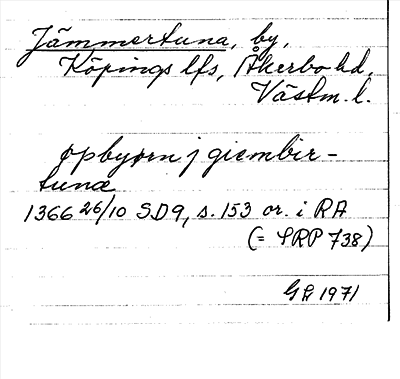 Jämmertuna, by,
Köpings lfs, Åkerbo hd,
Västm. l.
opbyørn j giembir-
tunæ
1366 26/10 SD9, s. 153 or. i RA
(= SRP 738)
1971